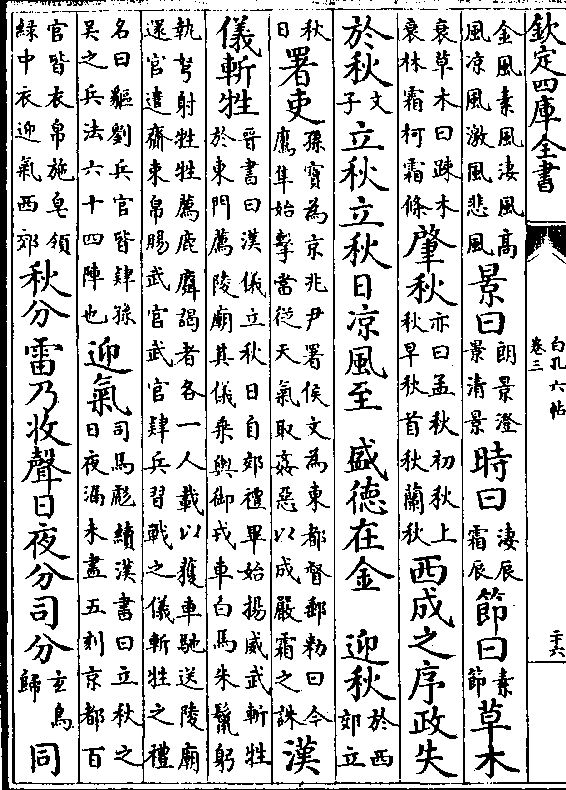 欽定四庫全書 白孔六帖 卷三 二十六
金風素風淒風高風凉風激風悲風景曰朗景澄景清景時曰淒辰霜辰節曰素節草木
衰草木曰疎木衰林霜柯霜條肇秋亦曰孟秋初秋上秋早秋首秋蘭秋西成之序政失
於秋文子立秋立秋日凉風至 盛德在金 迎秋於西郊立
秋日署吏孫寶為京兆尹署侯文為東都督郵勑曰今鷹隼始擊當從天氣取姦惡以成嚴霜之誅漢
儀斬牲晉書曰漢儀立秋日自郊禮畢始揚威武斬牲於東門薦陵廟其儀乘輿御戎車白馬朱鬛躬
執弩射牲牲薦鹿麛謁者各一人載以獲車馳送陵廟還官遣齋束帛賜武官武官肄兵習戰之儀斬牲之禮
名曰貙劉兵官皆肄孫吳之兵法六十四陣也迎氣司馬彪續漢書曰立秋之日夜漏未盡五刻京都百
官皆衣帛施皂領緑中衣迎氣西郊秋分雷乃收聲日夜分司分玄鳥歸同